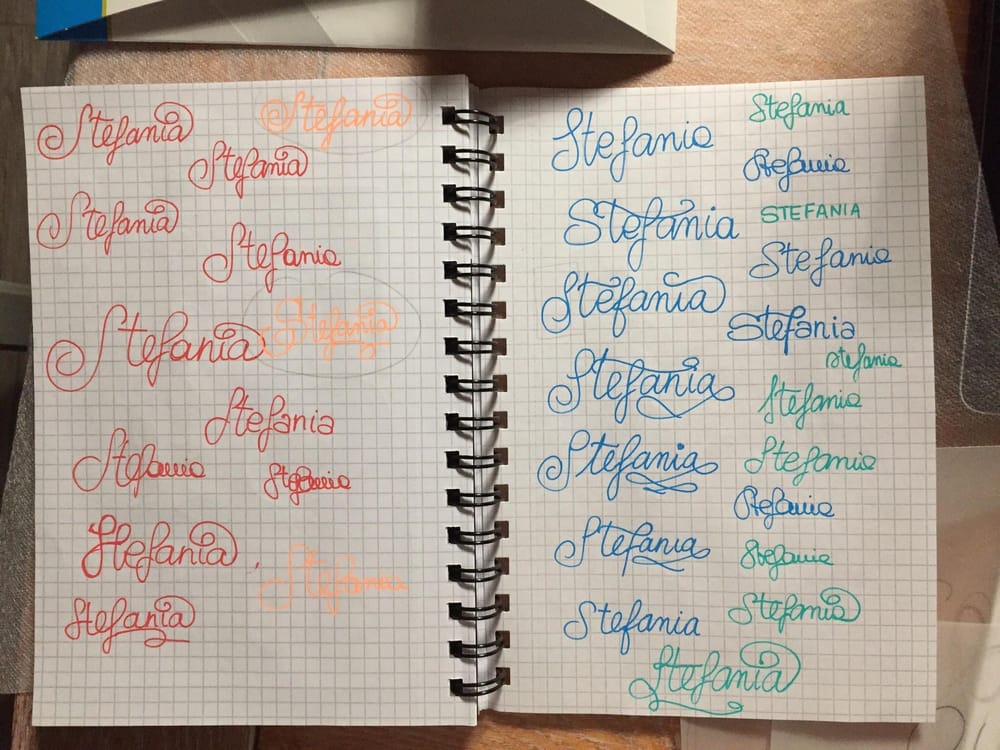 Stefania
Stefania
Stefania
Stefania
Stefania
Stefania
Stefania
Stefania
Stefania
Stefania
Stefania
Stefania
Stefania
Stefania
Stefania
Stefania
Stefania
Stefania
Stefania
Stefania
Stefania
Stefania
STEFANIA
Stefania
Stefania
stefania
Stefania
Stefania
Stefania
Stefania
Stefania
Stefania